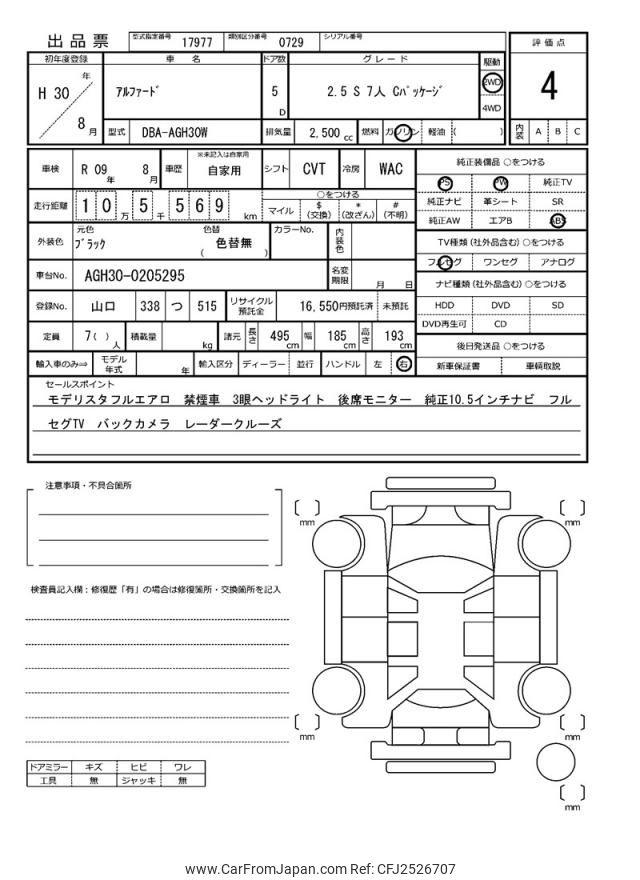 出品票 型式指定番号 17977 類別区分番号 0729 シリアル番号
初年度登録 車名 ドア数 グレード 駆動 評価点
H 30 年 8 月 アルファード 5 D 2.5 S 7人 Cパッケージ 2WD 4WD 4
型式 DBA-AGH30W 排気量 2,500 cc 燃料 ガソリン 軽油 ( ) 内装 A B C
車検 R 09 年 8 月 車歴 ※未記入は自家用 自家用 シフト CVT 冷房 WAC
純正装備品 ○をつける
PS PW 純正TV
走行距離 10 万 5 千 569 km ○をつける
マイル $ (交換) * (改ざん) # (不明)
純正ナビ 革シート SR
純正AW エアB ABS
外装色 元色 ブラック 色替 ( 色替無 ) カラーNo. 内装色
TV種類 (社外品含む) ○をつける
フルセグ ワンセグ アナログ
車台No. AGH30-0205295 名変期限 月 日
ナビ種類 (社外品含む) ○をつける
登録No. 山口 338 つ 515 リサイクル預託金 16,550円預託済 未預託
HDD DVD SD
DVD再生可 CD
定員 7( ) 人 積載量 kg 諸元 長さ 495 cm 幅 185 cm 高さ 193 cm
後日発送品 ○をつける
輸入車のみ⇒ モデル年式 年 輸入区分 ディーラー 並行 ハンドル 左 右
新車保証書 車輌取説
セールスポイント
モデリスタフルエアロ 禁煙車 3眼ヘッドライト 後席モニター 純正10.5インチナビ フル
セグTV バックカメラ レーダークルーズ
注意事項・不具合箇所
mm
mm
検査員記入欄：修復歴「有」の場合は修復箇所・交換箇所を記入
mm
mm
ドアミラー キズ ヒビ ワレ
工具 無 ジャッキ 無
mm
www.CarFromJapan.com Ref: CFJ2526707